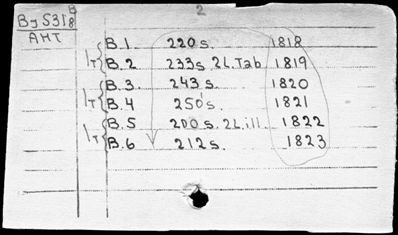 2
By 5318 B
AHT
1T { B.1 220 s. 1818
B.2 233s. 2L.Tab 1819
1T { B.3. 243 s. 1820
B.4 250's. 1821
1T { B.5 200 s. 2L.ill. 1822
B.6 212 s. 1823